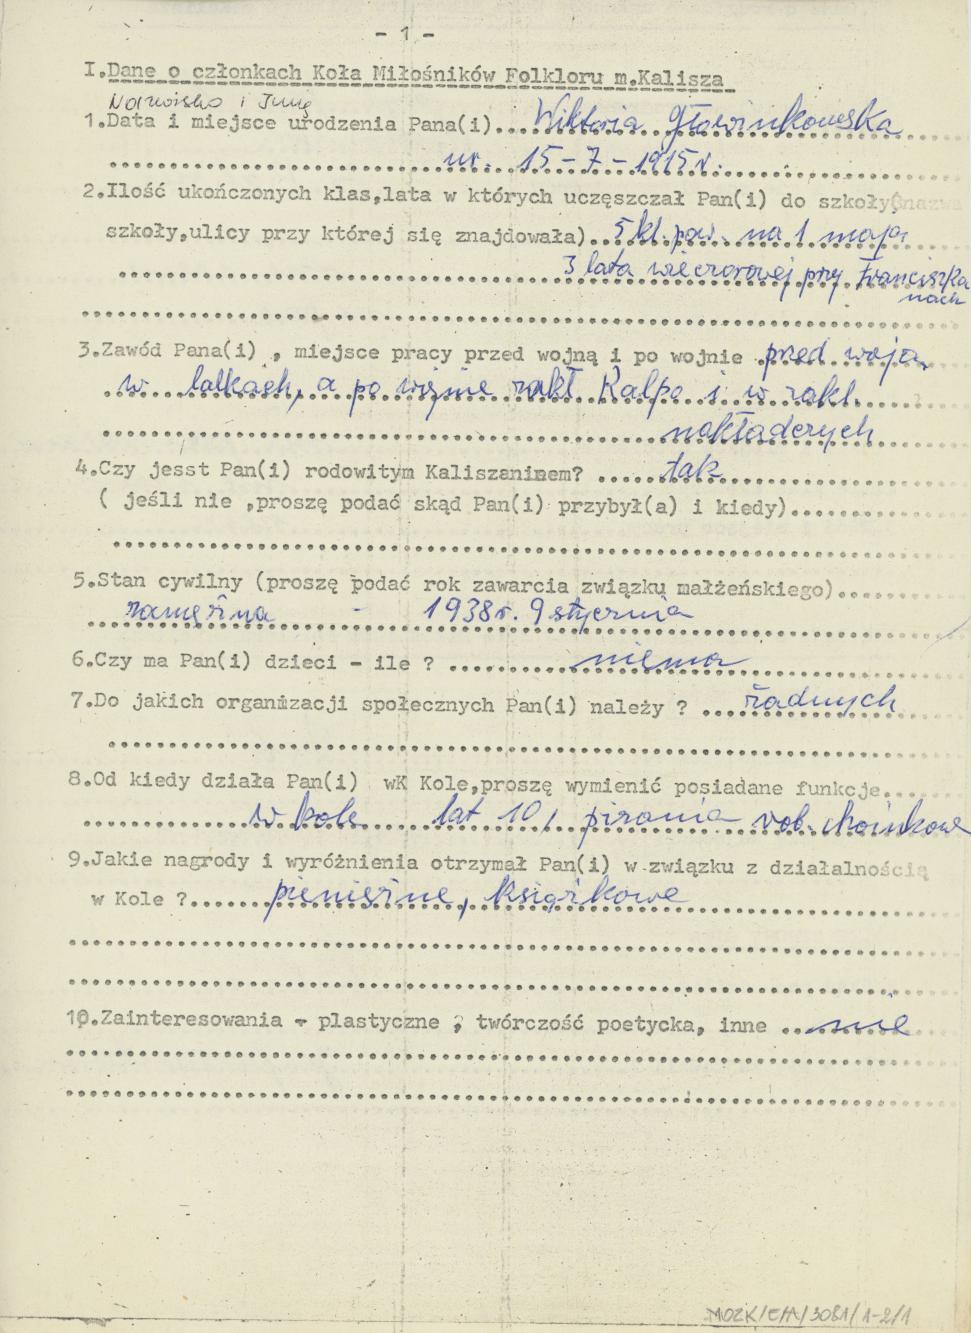 - 1 -
I.Dane o członkach Koła Miłośników Folkloru m.Kalisza
Nazwisko i Imię
1.Data i miejsce urodzenia Pana(i)... Wiktoria Głowinkowska
ur. 15-7-1915r.
2.Ilość ukończonych klas,lata w których uczęszczał Pan(i) do szkoły(nazwa
szkoły,ulicy przy której się znajdowała).. 5 kl. pow. na 1 maja
3 lata wieczorowej przy Franciszka
nach
3.Zawód Pana(i) , miejsce pracy przed wojną i po wojnie . przed wojna
w lalkach, a po wojnie zakł Kalpo i w zakł.
nakładczych
4.Czy jesst Pan(i) rodowitym Kaliszaninem? ..... tak
( jeśli nie ,proszę podać skąd Pan(i) przybył(a) i kiedy)
5.Stan cywilny (proszę podać rok zawarcia związku małżeńskiego)
zamężna - 1938r. 9 stycznia
6.Czy ma Pan(i) dzieci - ile ? .......... niema
7.Do jakich organizacji społecznych Pan(i) należy ? ... żadnych
8.Od kiedy działa Pan(i) wK Kole,proszę wymienić posiadane funkcje
w kole lat 10, pisania zob. choinkowe
9.Jakie nagrody i wyróżnienia otrzymał Pan(i) w związku z działalnością
w Kole ?...... pienieżne, książkowe
10.Zainteresowania - plastyczne , twórczość poetycka, inne .. nie
MOZK/E/A/3081/1-2/1